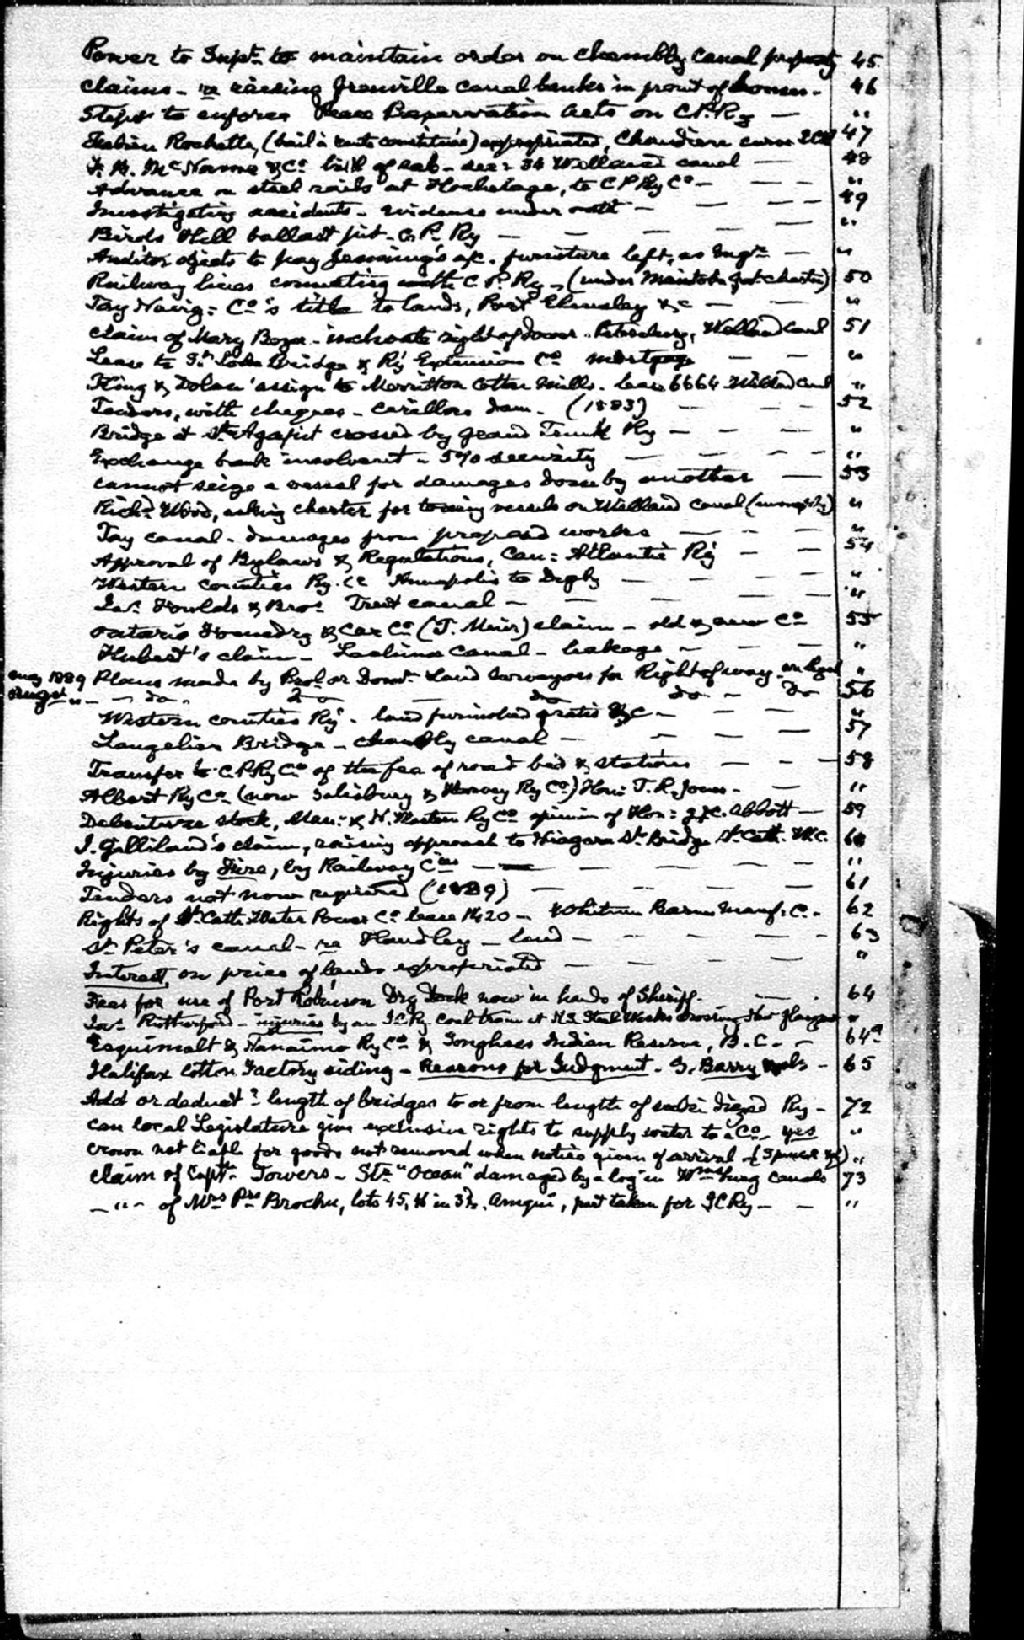 Power to Supt. to maintain order on Chambly Canal property 45
Claims - re raising Grenville canal banks in front of houses. 46
Steps to enforce Peace Preservation Acts on C.P.Ry — "
Fabien Rochette, (bail à rente constituée) expropriated, Chaudiere curve ICR 47
F. B. McNamee & Co bill of sale - sec: 34 Welland canal — 48
Advance on steel rails at Hochelaga, to C P Ry Co - — — "
Investigating accidents - evidence under oath — — — — 49
Birds Hill ballast pit - C. P. Ry — — — — — "
Auditor objects to pay Jennings's a/c. furniture left, as Engr. — "
Railway lines connecting with C. P. Ry - (under Manitoba Govt. charter) 50
Tay Navig: Co's title to lands, Port Elmsley &c — — "
Claim of Mary Boyer - inchoate right of dower - Welland Canal 51
Lease to St Bridge & Ry Extension Co mortgage — — "
King & Dolan assign to Merritton Cotton Mills. Lease 6664 Welland Canal "
Tenders, with cheques - Carillon dam. (1883) — — — 52
Bridge at St. Agapit crossed by Grand Trunk Ry — — — "
Exchange bank insolvent - 5% security — — — "
Cannot seize a vessel for damages done by another — 53
Richd. Wood, asking charter for towing vessels on Welland canal (monopoly) "
Tay canal - damages from proposed works — — — "
Approval of Bylaws & Regulations, Can: Atlantic Ry — — 54
Western Counties Ry. re Annapolis to Digby — — — "
Jas. Foulds & Bros. Trent canal — — — — "
Ontario Foundry & Car Co (T. Muir) claim - old & new Co 55
Hubert's claim - Lachine Canal - leakage — — — "
May 1889 Plans made by Prov. or Domn. Land Surveyors for Right of way - "
August " — do — do — do — do — do 56
Western Counties Ry. - land furnished gratis &c — "
Langelier Bridge - Chambly canal — — — — 57
Transfer to C.P.Ry Co of the fee of road bed & stations — — — 58
Albert Ry Co (now Salisbury & Harvey Ry Co) Hon: T. R. Jones. — "
Debenture stock, Man: & N. Western Ry Co opinion of Hon: J.J.C. Abbott — 59
J. Gilliland's claim, raising approach to Niagara St. Bridge St. Cath. W.C. 60
Injuries by Fire, by Railway Cos — — — — — "
Tenders not now required (1889) — — — — 61
Rights of St. Cath: Water Power Co lease - Whitman Barnes Manf. Co. 62
St. Peter's canal - re Handley - land — — — — — 63
Interest, on price of lands expropriated — — — — "
Fees for use of Port Robinson Dry Dock now in hands of Sheriff. — 64
Jas. Rutherford - injuries by an I.C.Ry Coal train at N.S. Steel Works crossing "
Esquimalt & Nanaimo Ry Co & Songhees Indian Reserve, B.C. - 64a
Halifax Cotton Factory siding - Reasons for Judgment - 65
Add or deduct? length of bridges to or from length of subsidized Ry - 72
Can local Legislature give exclusive rights to supply water to a Co. yes "
Crown not liable for goods not removed when notice given of arrival "
Claim of Capt. Towers - Str. "Ocean" damaged by a log in Wmsburg Canals 73
— " — of Mrs. Pre Brochu, lots 45, 46 in 3d r. Amqui, part taken for ICRy — — "